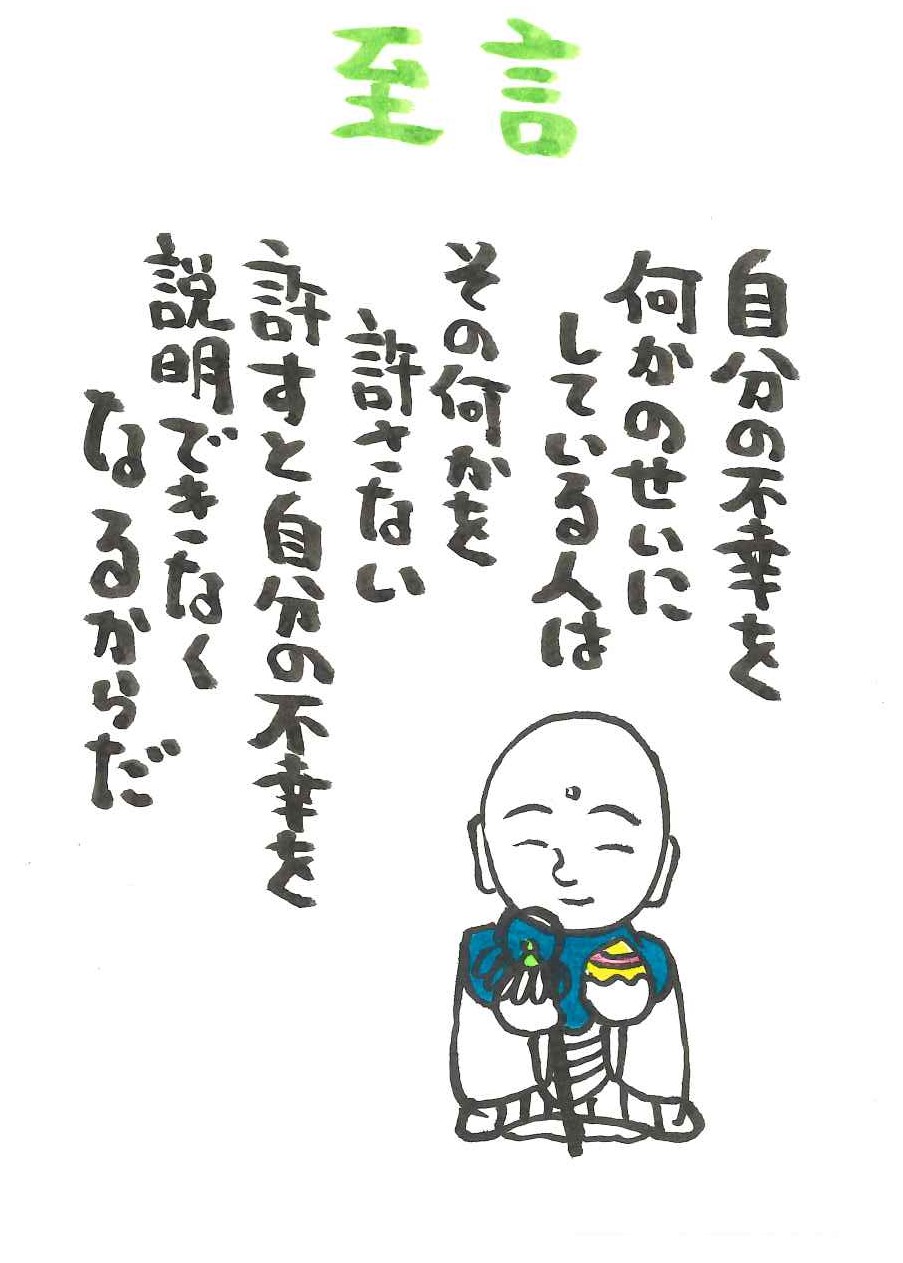 至言
自分の不幸を
何かのせいに
している人は
その何かを
許さない
許すと自分の不幸を
説明できなく
なるからだ